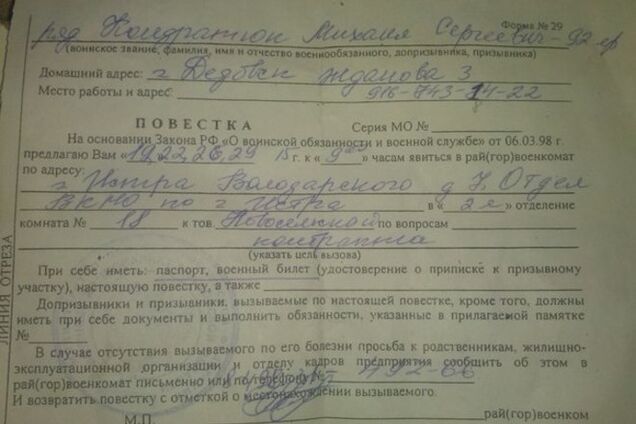 Форма № 29
ряд Кондратюк Михаил Сергеевич - 92 гр
(воинское звание, фамилия, имя и отчество военнообязанного, допризывника, призывника)
Домашний адрес: г Дедовск Жданова 3
Место работы и адрес: 916-743-14-22
ПОВЕСТКА Серия МО №
На основании Закона РФ «О воинской обязанности и военной службе» от 06.03.98 г.
предлагаю Вам «19,22,26,29 15 г. к « 9 » часам явиться в рай(гор)военкомат
по адресу:
г Истра Володарского д Отдел
ВКМО по г Истра в « 2 » отделение
комната № 18 к тов. по вопросам
контракта
(указать цель вызова)
При себе иметь: паспорт, военный билет (удостоверение о приписке к призывному
участку), настоящую повестку, а также
Допризывники и призывники, вызываемые по настоящей повестке, кроме того, должны
иметь при себе документы и выполнить обязанности, указанные в прилагаемой памятке
№
В случае отсутствия вызываемого по его болезни просьба к родственникам, жилищно-
эксплуатационной организации и отделу кадров предприятия сообщить об этом в
рай(гор)военкомат письменно или по телефону №
И возвратить повестку с отметкой о местонахождении вызываемого.
М.П. рай(гор)военком
ЛИНИЯ ОТРЕЗА